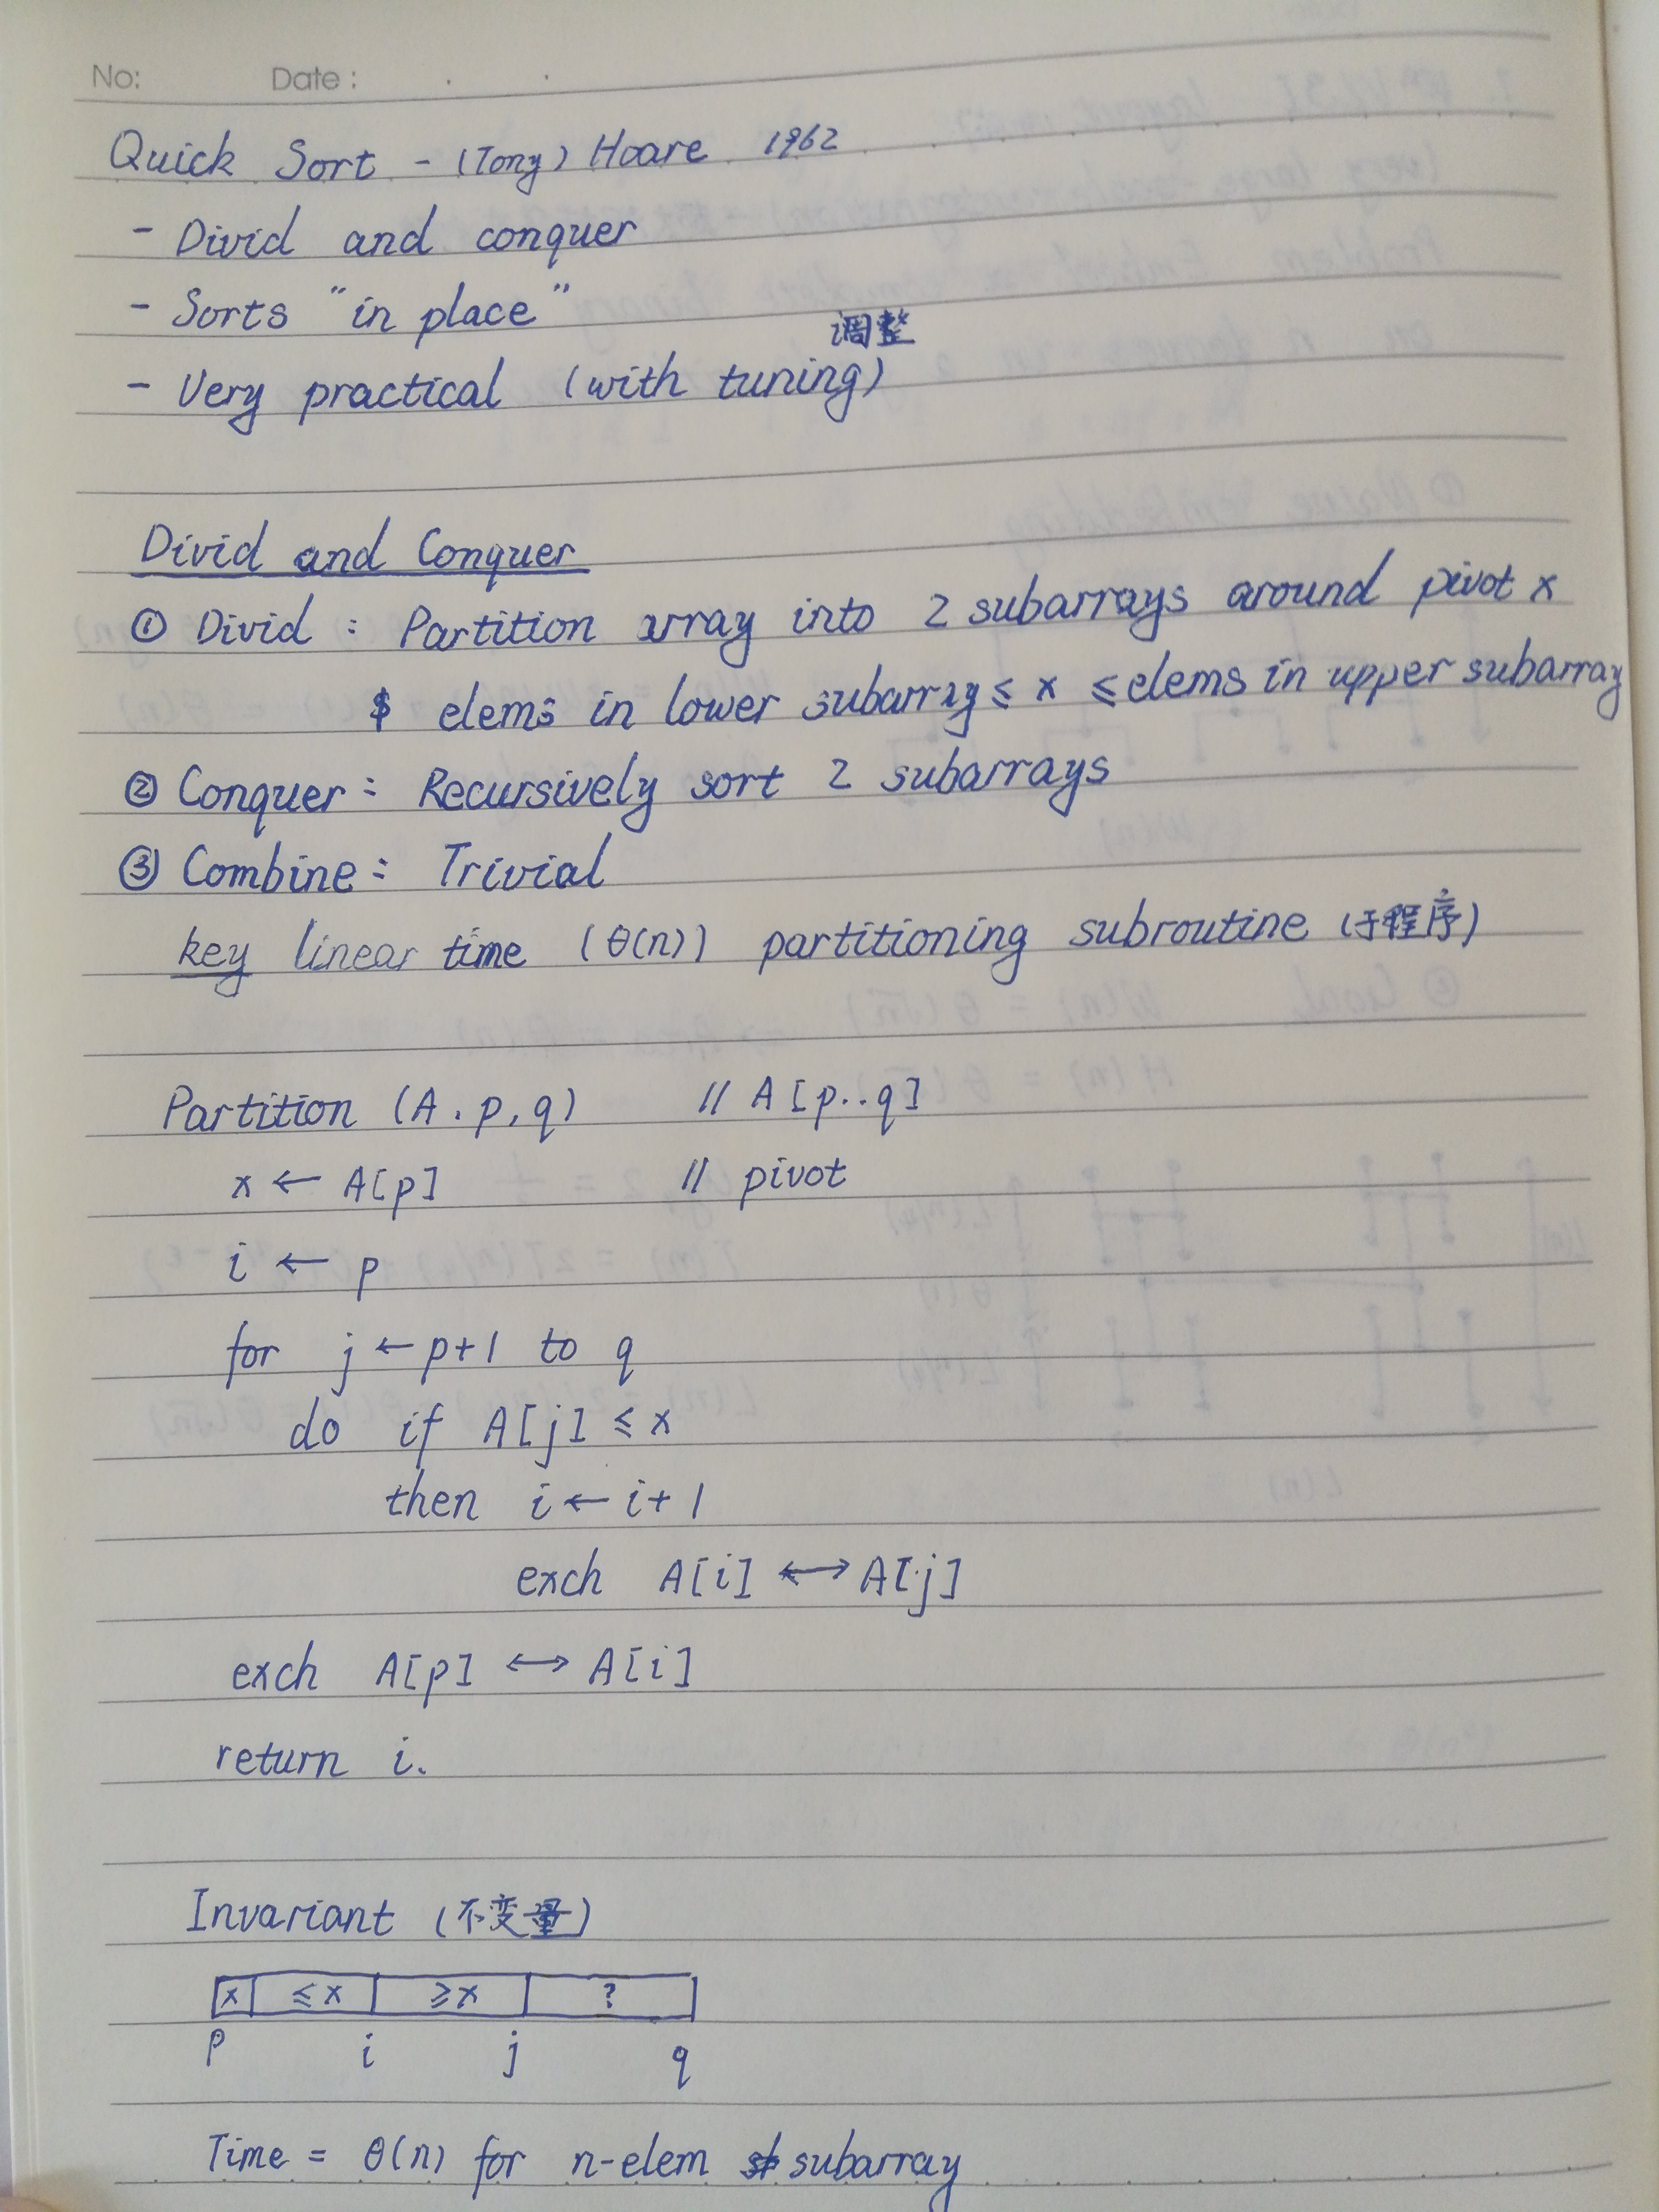 No: Date: . .
Quick Sort - (Tony) Hoare 1962
- Divid and conquer
- Sorts "in place"
调整
- Very practical (with tuning)
Divid and Conquer
① Divid : Partition array into 2 subarrays around pivot x
$ elems in lower subarray ≤ x ≤ elems in upper subarray
② Conquer : Recursively sort 2 subarrays
③ Combine : Trivial
key linear time (θ(n)) partitioning subroutine (子程序)
Partition (A, p, q) // A[p..q]
x ← A[p] // pivot
i ← p
for j ← p+1 to q
do if A[j] ≤ x
then i ← i+1
exch A[i] ↔ A[j]
exch A[p] ↔ A[i]
return i.
Invariant (不变量)
x ≤x ≥x ?
p i j q
Time = θ(n) for n-elem subarray